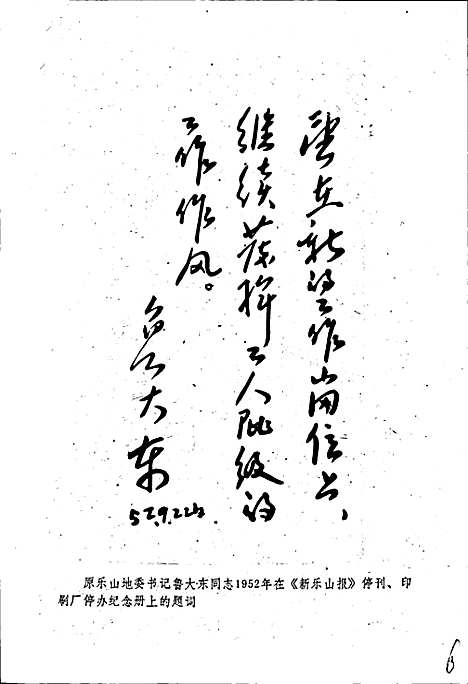 望在新的工作岗位上，
继续发挥工人阶级的
工作作风。
鲁大东
52.9.22日
原乐山地委书记鲁大东同志1952年在《新乐山报》停刊、印
刷厂停办纪念册上的题词
6